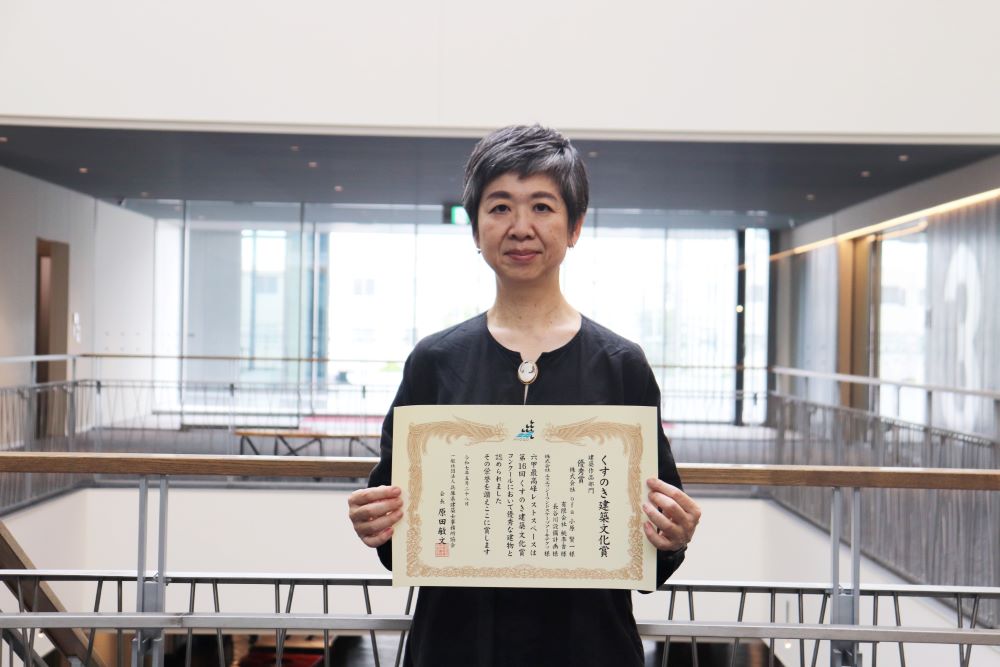 くすのき建築文化賞
建築作品部門
優秀賞
株式会社 ofa 小原 賢一様
有限会社 桃李舎様
長谷川設備計画様
六甲最高峰レストスペースは
第16回くすのき建築文化賞
コンクールにおいて優秀な建物と
認められました
その栄誉を讃えここに賞します
令和七年五月二十八日
一般社団法人兵庫県建築士事務所協会
会長 原田敏文
3